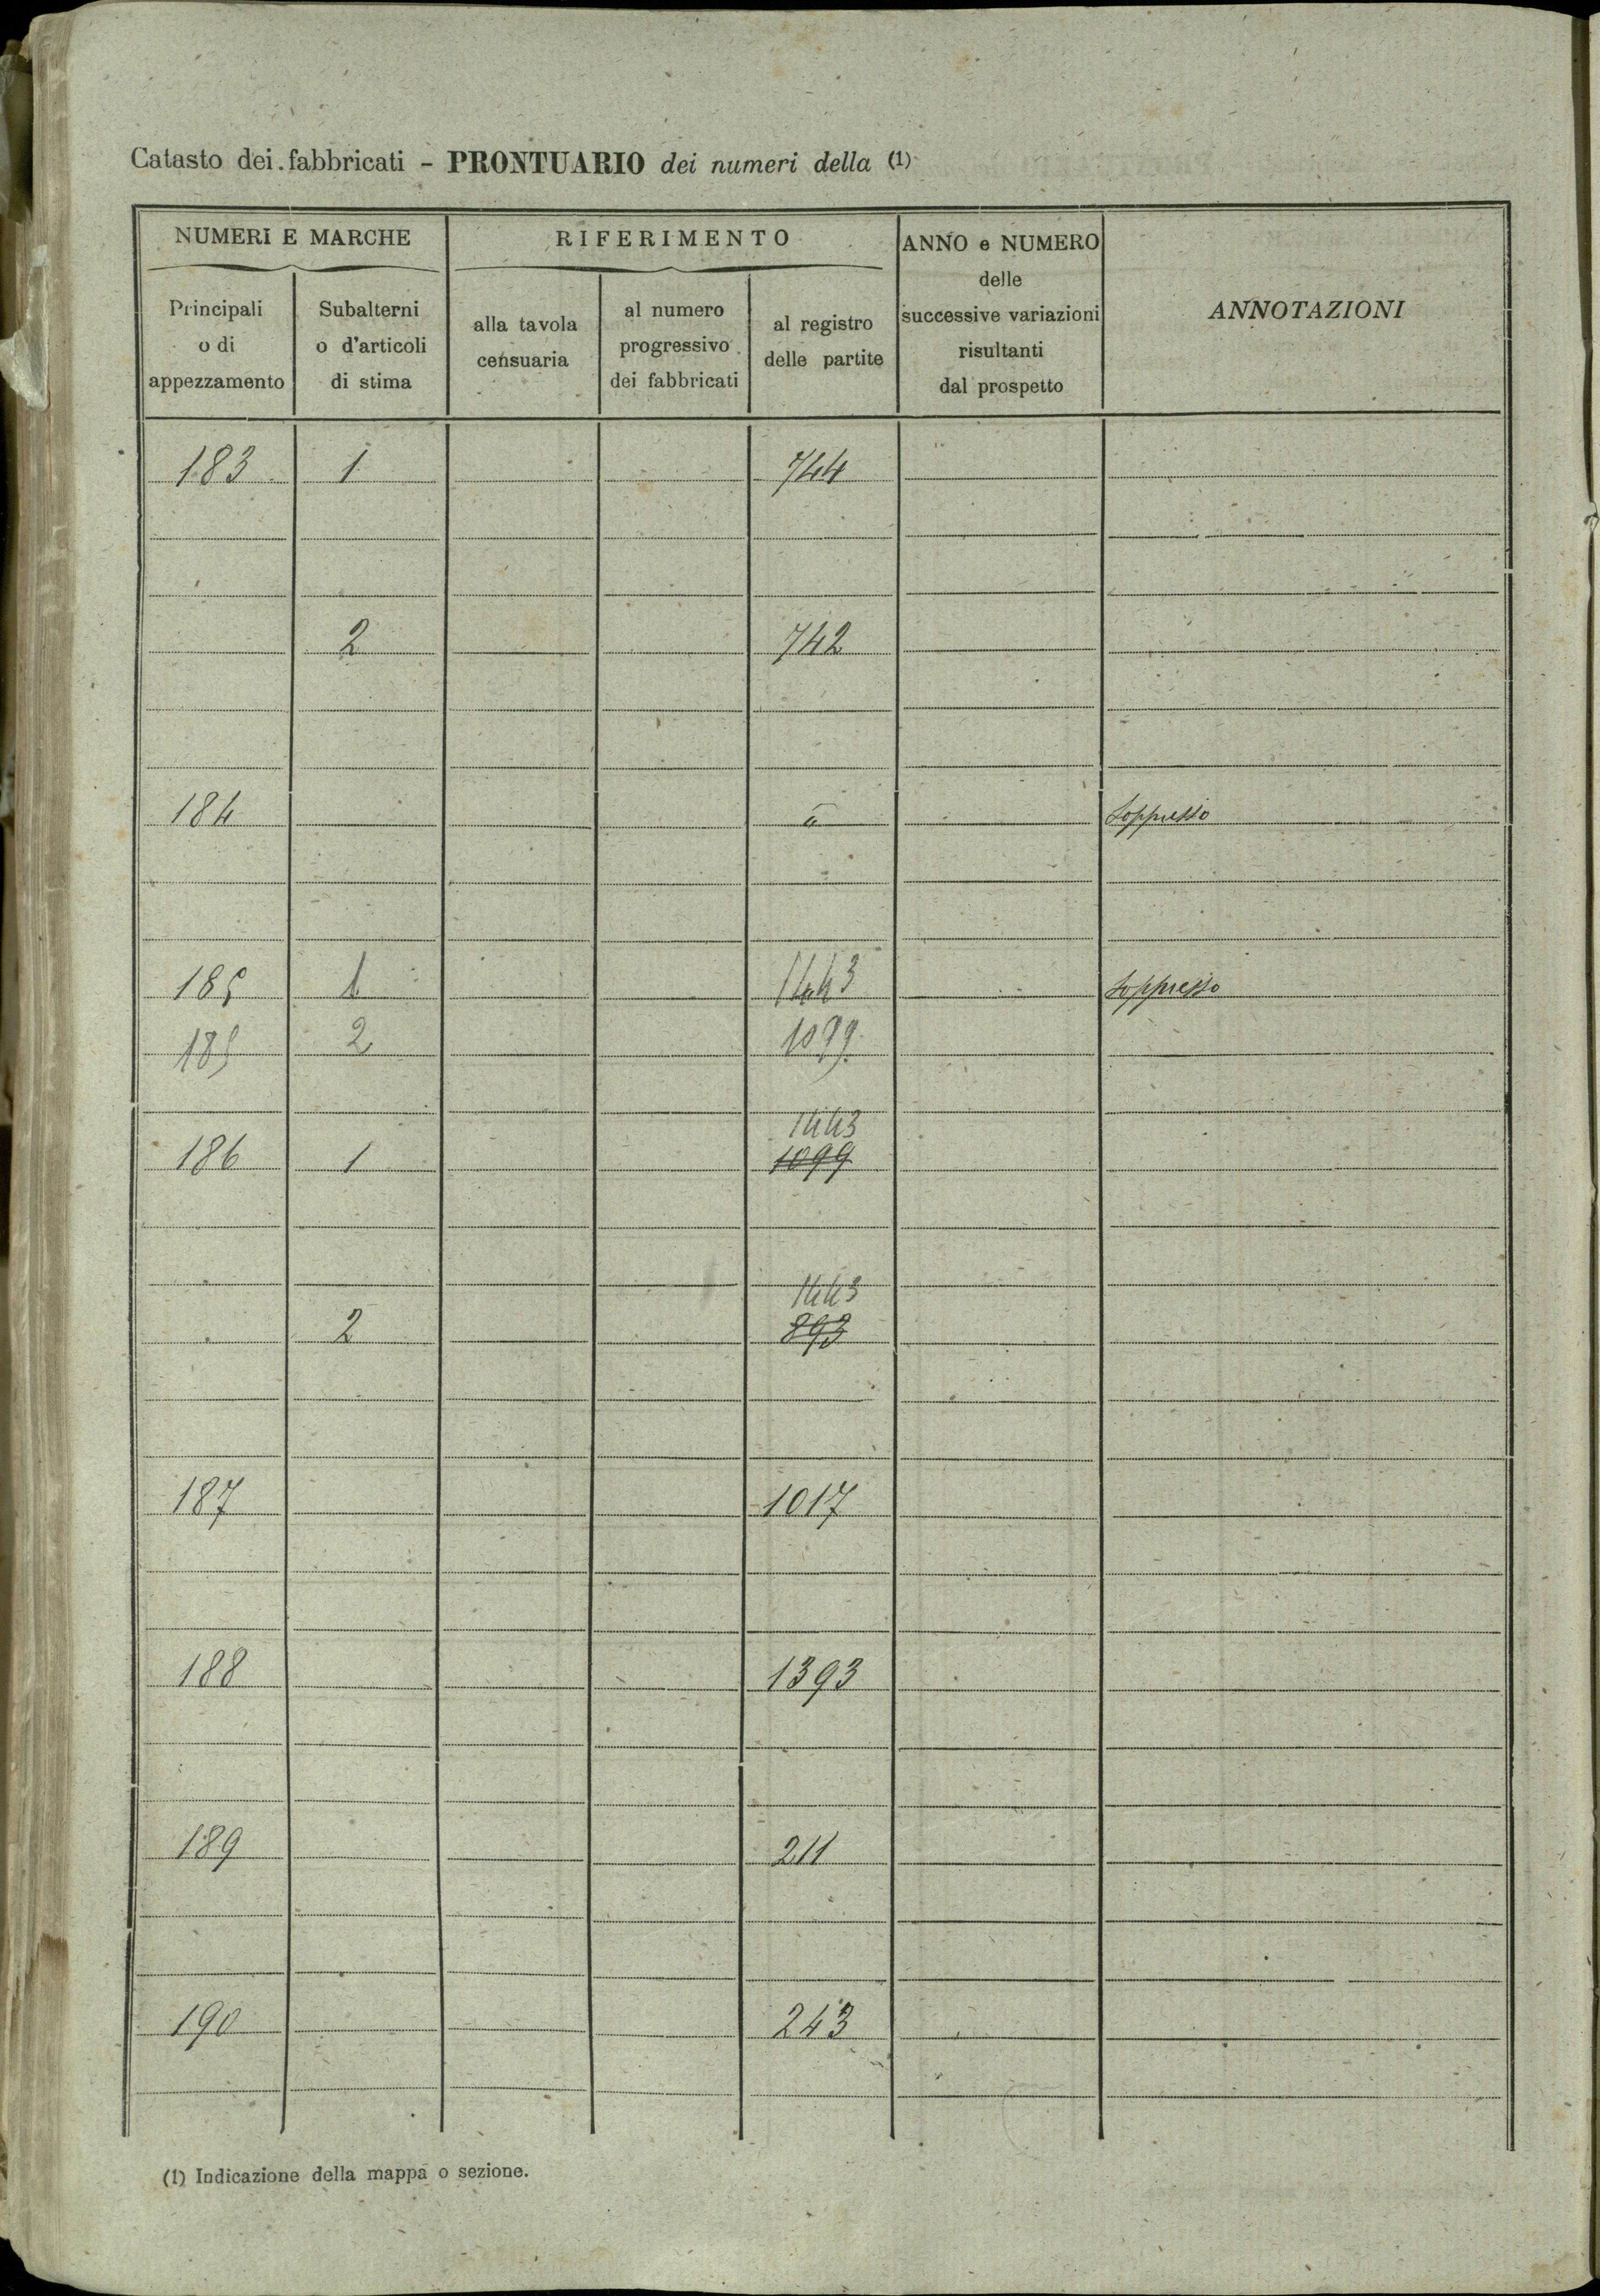 Catasto dei fabbricati - PRONTUARIO dei numeri della (1)
NUMERI E MARCHE
Principali
o di
appezzamento
Subalterni
o d'articoli
di stima
RIFERIMENTO
alla tavola
censuaria
al numero
progressivo
dei fabbricati
al registro
delle partite
ANNO e NUMERO
delle
successive variazioni
risultanti
dal prospetto
ANNOTAZIONI
183 1 744
2 742
184 " Soppresso
185 1 1443 Soppresso
185 2 1099
1443
186 1 1099
1443
2 893
187 1017
188 1393
189 211
190 243
(1) Indicazione della mappa o sezione.